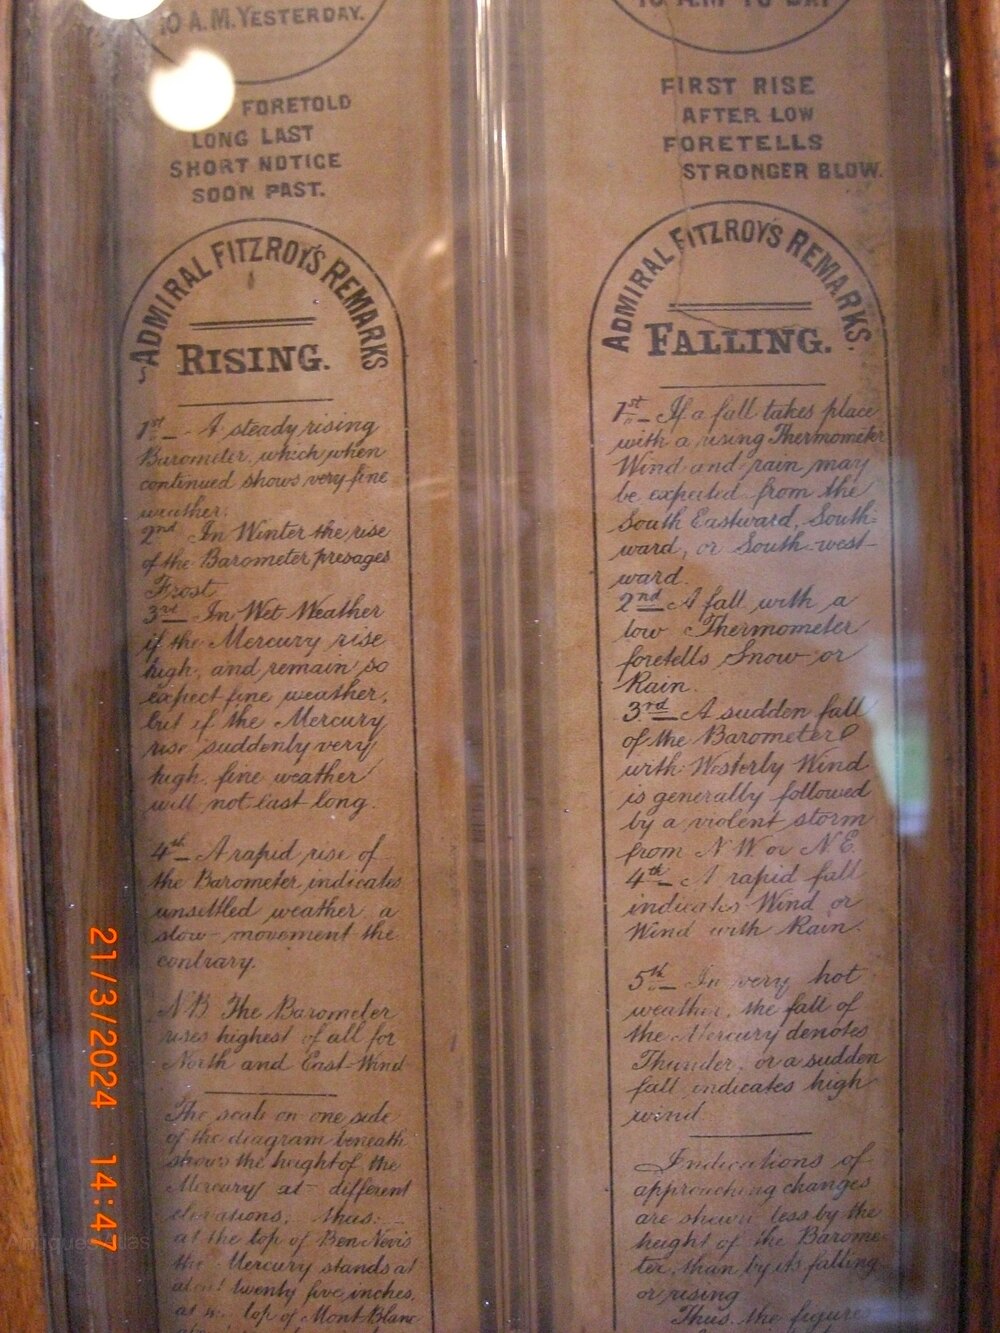 10 A.M. YESTERDAY.
FORETOLD
LONG LAST
SHORT NOTICE
SOON PAST.
ADMIRAL FITZROY'S REMARKS
RISING.
1st - A steady rising
Barometer, which when
continued shows very fine
weather.
2nd In Winter the rise
of the Barometer presages
Frost
3rd In Wet Weather
if the Mercury rise
high, and remain so
expect fine weather,
but if the Mercury
rise suddenly very
high, fine weather
will not last long.
4th A rapid rise of
the Barometer indicates
unsettled weather a
slow movement the
contrary.
N.B. The Barometer
rises highest of all for
North and East Wind
The scale on one side
of the diagram beneath
shows the height of the
Mercury at different
elevations, thus:
at the top of Ben Nevis
the Mercury stands at
about twenty five inches,
at top of Mont Blanc
10 A.M TO DAY
FIRST RISE
AFTER LOW
FORETELLS
STRONGER BLOW.
ADMIRAL FITZROY'S REMARKS.
FALLING.
1st If a fall takes place
with a rising Thermometer
Wind and rain may
be expected from the
South Eastward, South-
ward, or South-west-
ward.
2nd A fall with a
low Thermometer
foretells Snow or
Rain.
3rd A sudden fall
of the Barometer
with Westerly Wind
is generally followed
by a violent storm
from N.W. or N.E.
4th A rapid fall
indicates Wind or
Wind with Rain.
5th In very hot
weather, the fall of
the Mercury denotes
Thunder, or a sudden
fall indicates high
wind
Indications of
approaching changes
are shewn less by the
height of the Barome-
ter, than by its falling
or rising
Thus, the figures
21/3/2024 14:47
Antiques Atlas